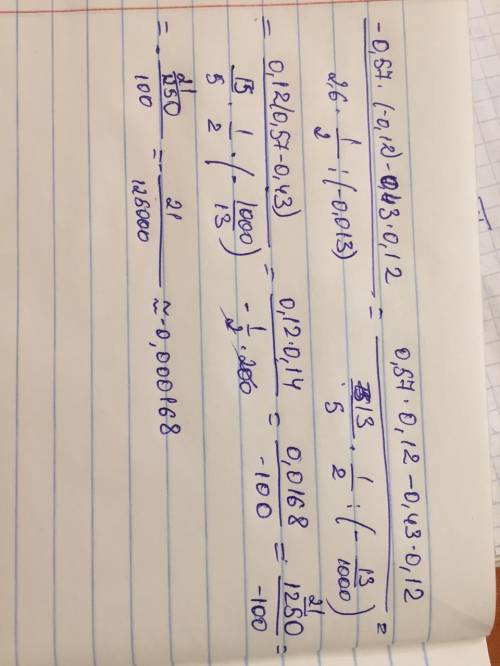 -0,57 · (-0,12) - 0,43 · 0,12 / 2,6 · 1/2 : (-0,013) = 0,57 · 0,12 - 0,43 · 0,12 / 13/5 · 1/2 : (- 13/1000) =
= 0,12(0,57-0,43) / 13/5 · 1/2 · (- 1000/13) = 0,12·0,14 / - 1/2 · 200 = 0,0168 / -100 = 21/1250 / -100 =
= - 21/1250 / 100 = - 21/125000 ≈ -0,000168